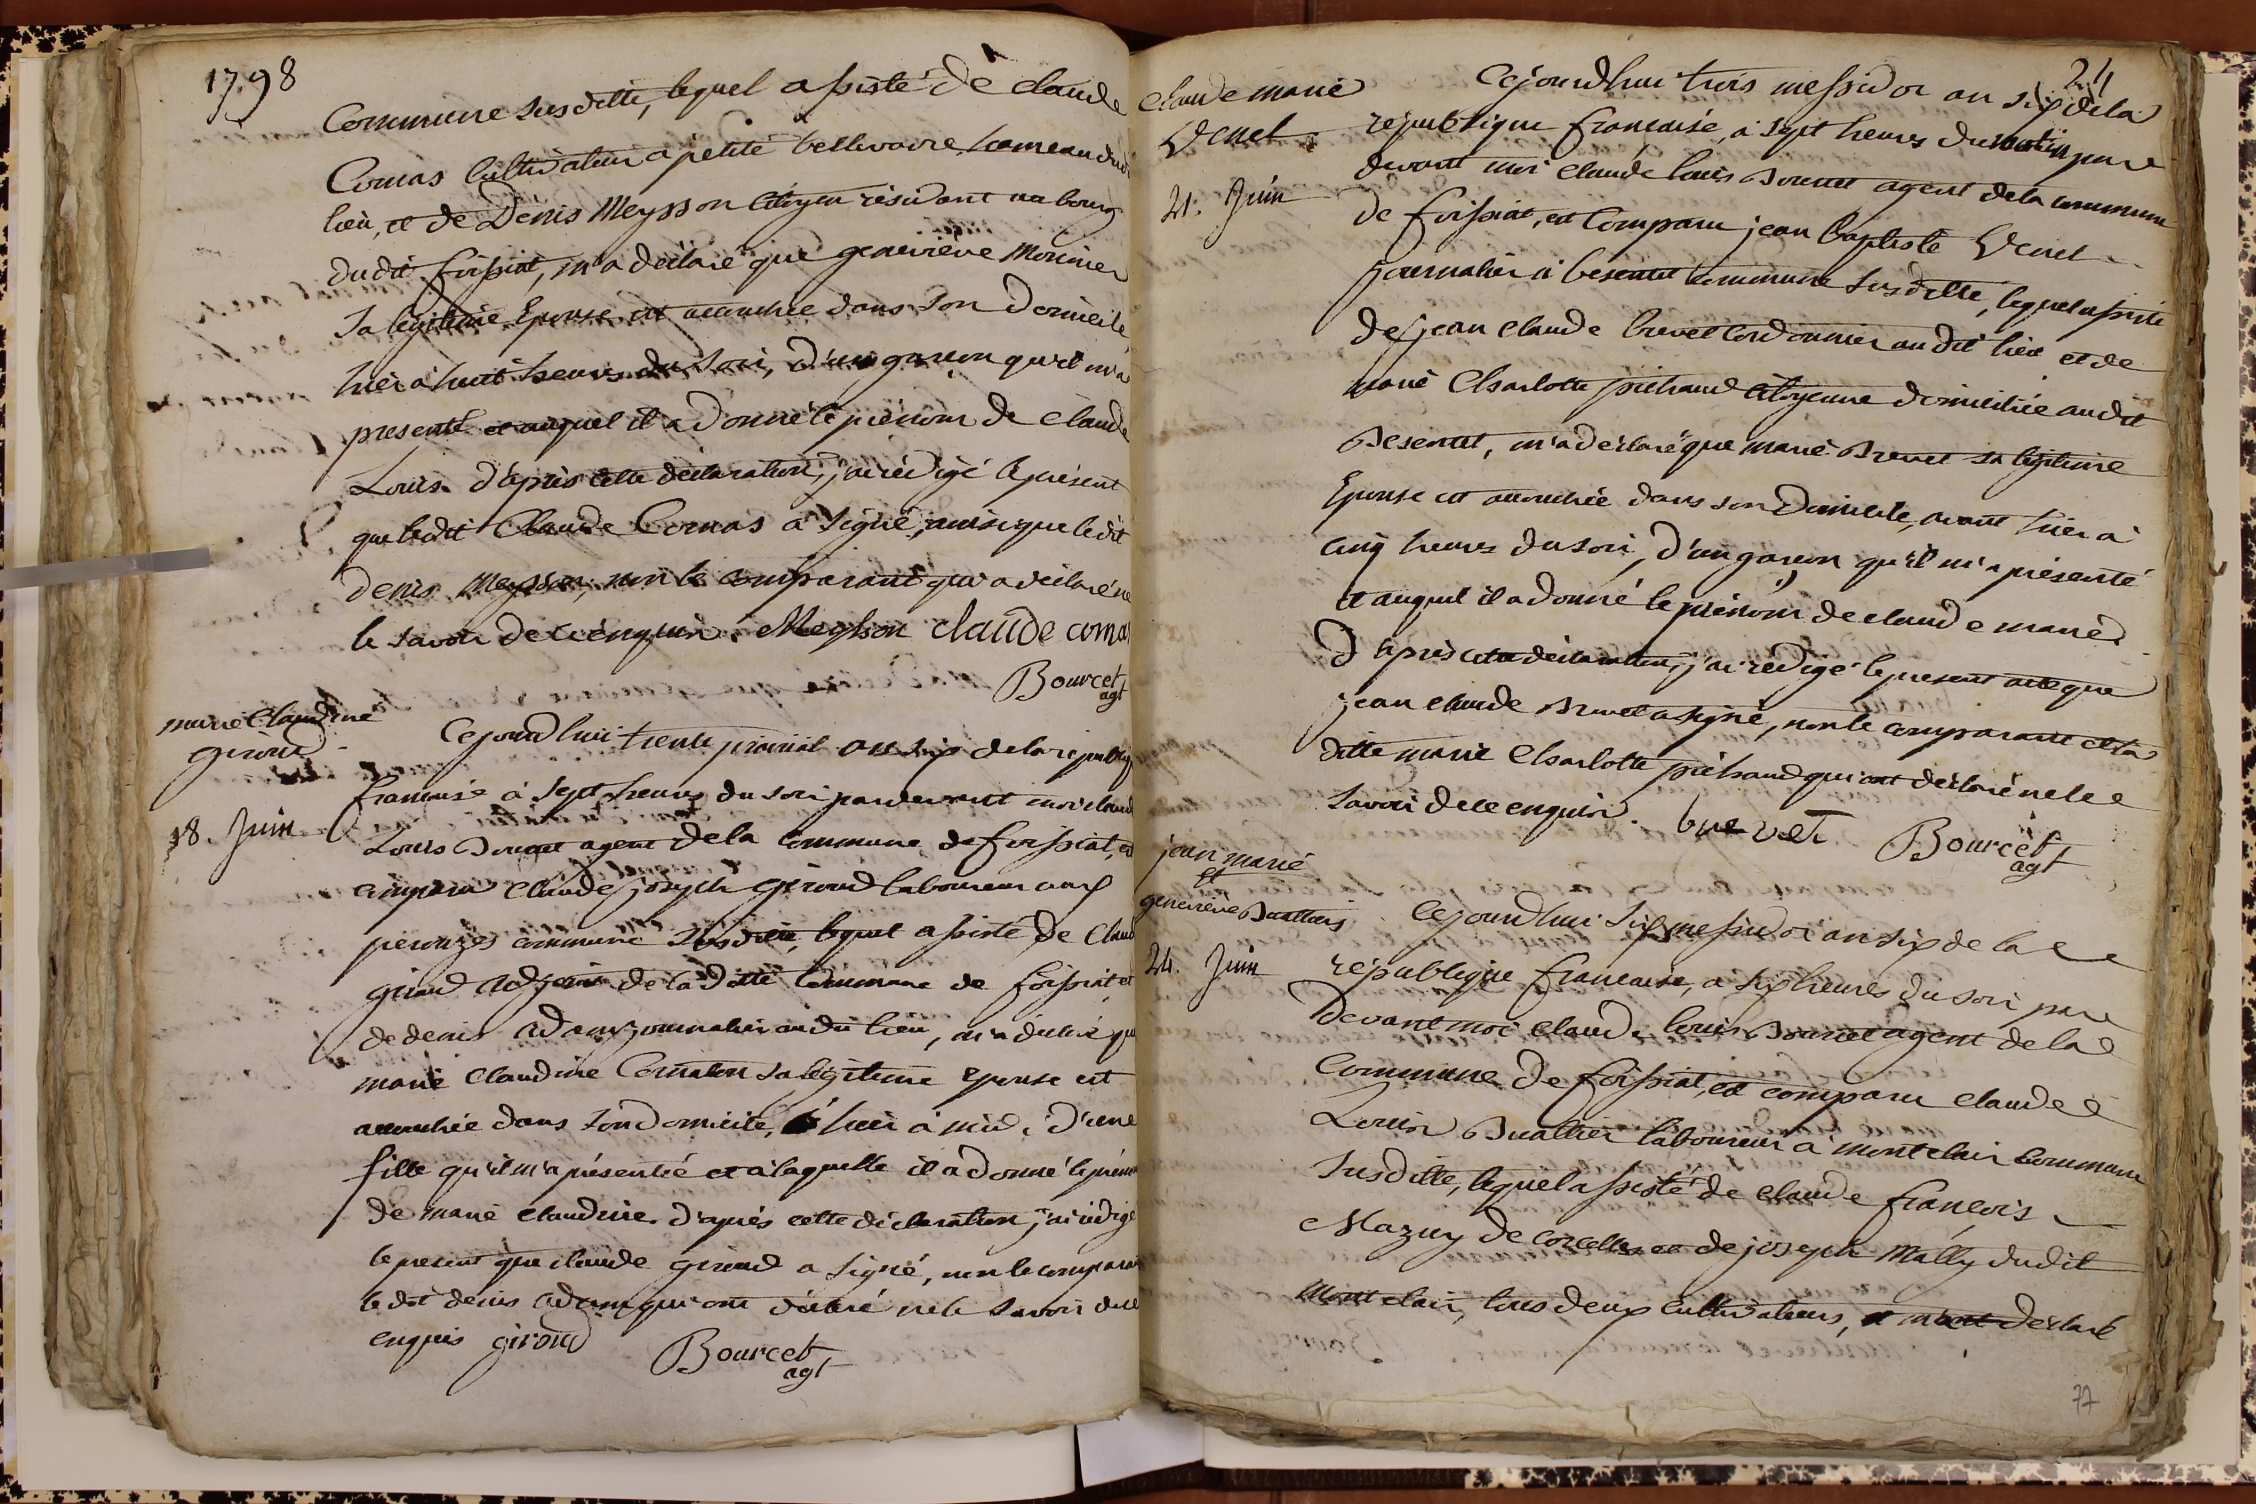 1798
Commune susditte, lequel assisté de claude
Comas Cultivateur a petite bellevavre hameau dud
lieu, et de Denis Meysson Citoyen résidant au bourg
dudit foissiat, m'a déclaré que genevieve Morinier
Sa légitime Epouse est accouchée dans son Domicile
hier à huit heures du soir, d'un garçon qu'il m'a
presenté et auquel il a donné le prénom de Claude
Louis. d'après cette déclaration, j'ai rédigé le présent
que ledit Claude Comas a signé, ainsi que ledit
denis Meysson, non le comparant qui a déclaré ne
le savoir de ce enquis. Meysson claude coma
Bourcet
agt
marie Claudine
giroud
18. Juin
Cejourd'hui trente prairial an six de la republiq
francaise à sept heures du soir pardevant moi claud
Louis Bourcet agent de la commune de foissiat, est
comparu claude joseph Giroud laboureur aux
perouzes commune susditte, lequel assisté de Claud
giroud adjoint de la ditte commune de foissiat et
de denis adam journalier audit lieu, m'a déclaré que
marie Claudine Comaton sa légitime Epouse est
accouchée dans son domicile, hier à midi, d'une
fille qu'il m'a présentée et à laquelle il a donné le préno
de marie claudine. d'après cette déclaration j'ai rédigé
le present que claude giroud a signé, non le comparant
le dit denis adam qui ont déclaré ne le savoir de ce
enquis giroud
Bourcet
agt
24
claude marie
Venet
21. Juin
Cejourd'hui trois messidor an six de la
république française, à sept heures du matin par
devant moi claude louis Bourcet agent de la commune
de foissiat, est comparu jean baptiste Venet
journalier à besentet commune susditte, lequel assisté
de jean claude brevet Cordonnier au dit lieu et de
marie Charlotte préhaud citoyenne domiciliée audit
Besentet, m'a déclaré que marie Brevet sa légitime
Epouse est accouchée dans son Domicile, avant hier à
cinq heures du soir, d'un garcon qu'il m'a présenté
et auquel il a donné le prénom de claude marie.
D'après cette déclaration, j'ai rédigé le present acte que
jean claude Brevet a signé, non le comparant et la
ditte marie Charlotte préhaud qui ont déclaré ne le
savoir de ce enquis. brevet
Bourcet
agt
jean marie
et
genevieve Buathier
24. Juin
Cejourd'hui six messidor an six de la
république francaise, a six heures du soir par
Devant moi claude louis Bourcet agent de la
Commune de foissiat, est comparu claude
Louis Buathier laboureur a montclair commune
susditte, lequel assisté de claude françois
Mazuy de corcelles et de joseph Mally dudit
Montclair, tous deux cultivateurs, m'a déclaré
77